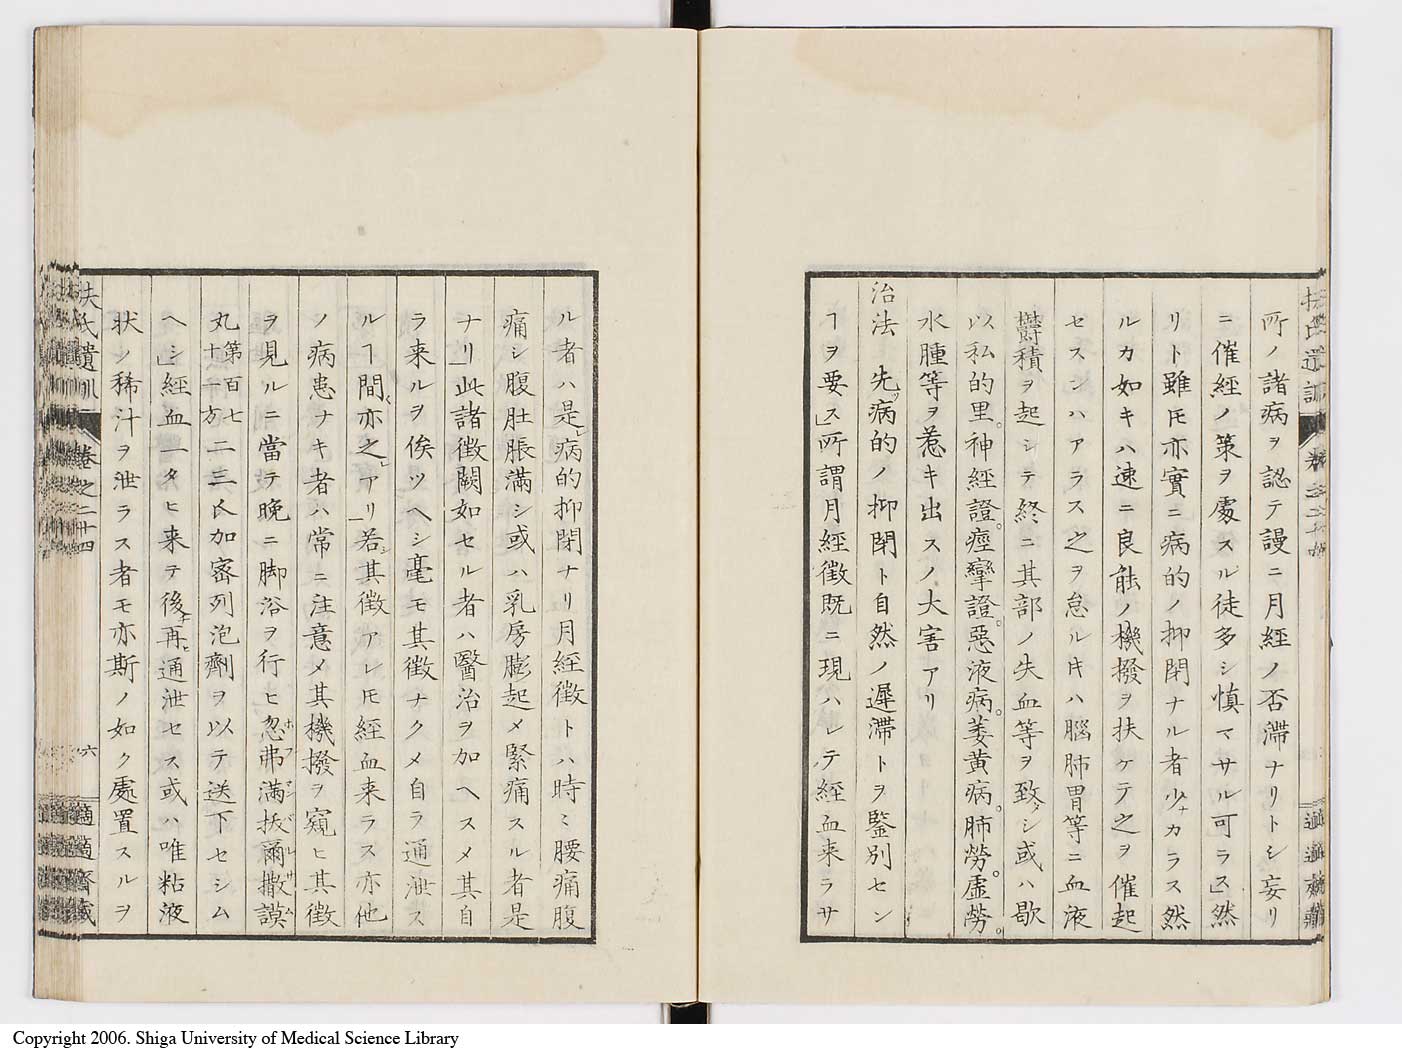 所ノ諸病ヲ認テ謾ニ月経ノ否滞ナリトシ妄リ
ニ催経ノ策ヲ處スル徒多シ慎マサル可ラス」然
リト雖𪜈亦實ニ病的ノ抑閉ナル者少ナカラス然
ルカ如キハ速ニ良能ノ機撥ヲ扶ケテ之ヲ催起
セスンハアラス之ヲ怠ルキハ脳肺胃等ニ血液
欝積ヲ起シテ終ニ其部ノ失血等ヲ致シ或ハ歇
以私的里。神経證。痙攣證。惡液病。萎黄病。肺勞。虚勞。
水腫等ヲ惹キ出スノ大害アリ
治法 先ツ病的ノ抑閉ト自然ノ遅滞トヲ鑒別セン
ヿヲ要ス」所謂月経徴既ニ現ハレテ経血来ラサ
ル者ハ是レ病的抑閉ナリ月経徴トハ時〻腰痛腹
痛シ腹肚脹満シ或ハ乳房膨起メ緊痛スル者是
ナリ」此諸徴闕如セル者ハ醫治ヲ加ヘスメ其自
ラ来ルヲ俟ツヘシ毫モ其徴ナクメ自ラ通泄ス
ルヿ間亦之アリ」若シ其徴アレ𪜈経血来ラス亦他
ノ病患ナキ者ハ常ニ注意メ其機撥ヲ窺ヒ其徴
ヲ見ルニ當テ晩ニ脚浴ヲ行ヒ忽弗満抜爾撒謨
丸第百七十一方二三氏加密列泡劑ヲ以テ送下セシム
ヘシ」経血一タヒ来テ後チ再ヒ通泄セス或ハ唯粘液
状ノ稀汁ヲ泄ラス者モ亦斯ノ如ク處置スルヲ
扶氏遺訓 巻之二十四 六 適適齋蔵
Copyright 2006. Shiga University of Medical Science Library